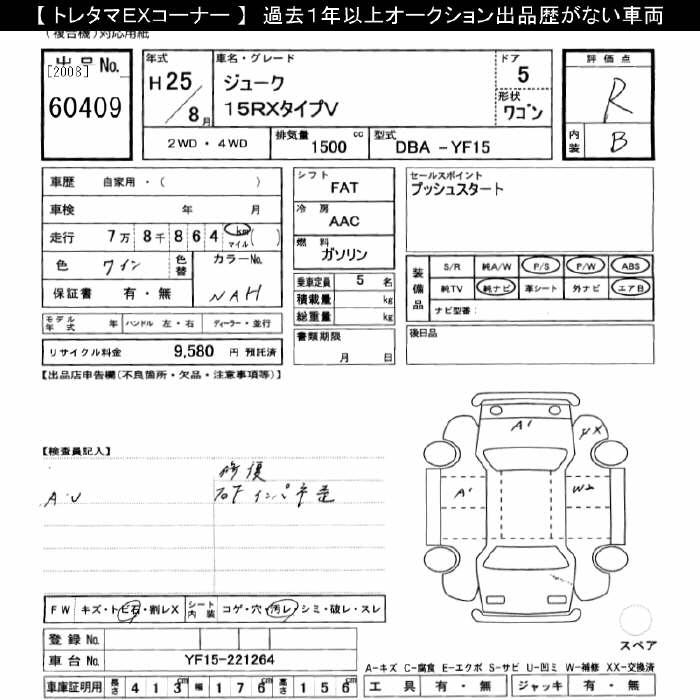 【 トレタマEXコーナー 】 過去１年以上オークション出品歴がない車両
(複合機)対応用紙
出品No.
[2008]
60409
年式
H 25
8月
車名・グレード
ジューク
15RXタイプV
ドア
5
形状
ワゴン
評価点
R
内装
B
2WD・4WD
排気量
1500 cc
型式
DBA -YF15
車歴 自家用・( )
車検 年 月
走行 7万 8千 8 6 4 km マイル ( )
色 ワイン
色替
カラーNo.
NAH
保証書 有・無
モデル年式 年 ハンドル 左・右 ディーラー・並行
リサイクル料金 9,580 円 預託済
シフト
FAT
冷房
AAC
燃料
ガソリン
乗車定員 5 名
積載量 kg
総重量 kg
書類期限
月 日
セールスポイント
プッシュスタート
装備品
S/R 純A/W P/S P/W ABS
純TV 純ナビ 革シート 外ナビ エアB
ナビ型番:
後日品
【出品店申告欄(不良箇所・欠品・注意事項等)】
【検査員記入】
修復
A・U
フロアインパネ歪
A1
A1
W2
FW キズ・トビ石・割レX シート内装 コゲ・穴・汚レ・シミ・破レ・スレ
登録No.
車台No. YF15-221264
車庫証明用 長さ 413cm 幅 176cm 高さ 156cm
スペア
A-キズ C-腐食 E-エクボ S-サビ U-凹ミ W-補修 XX-交換済
工具 有・無 ジャッキ 有・無